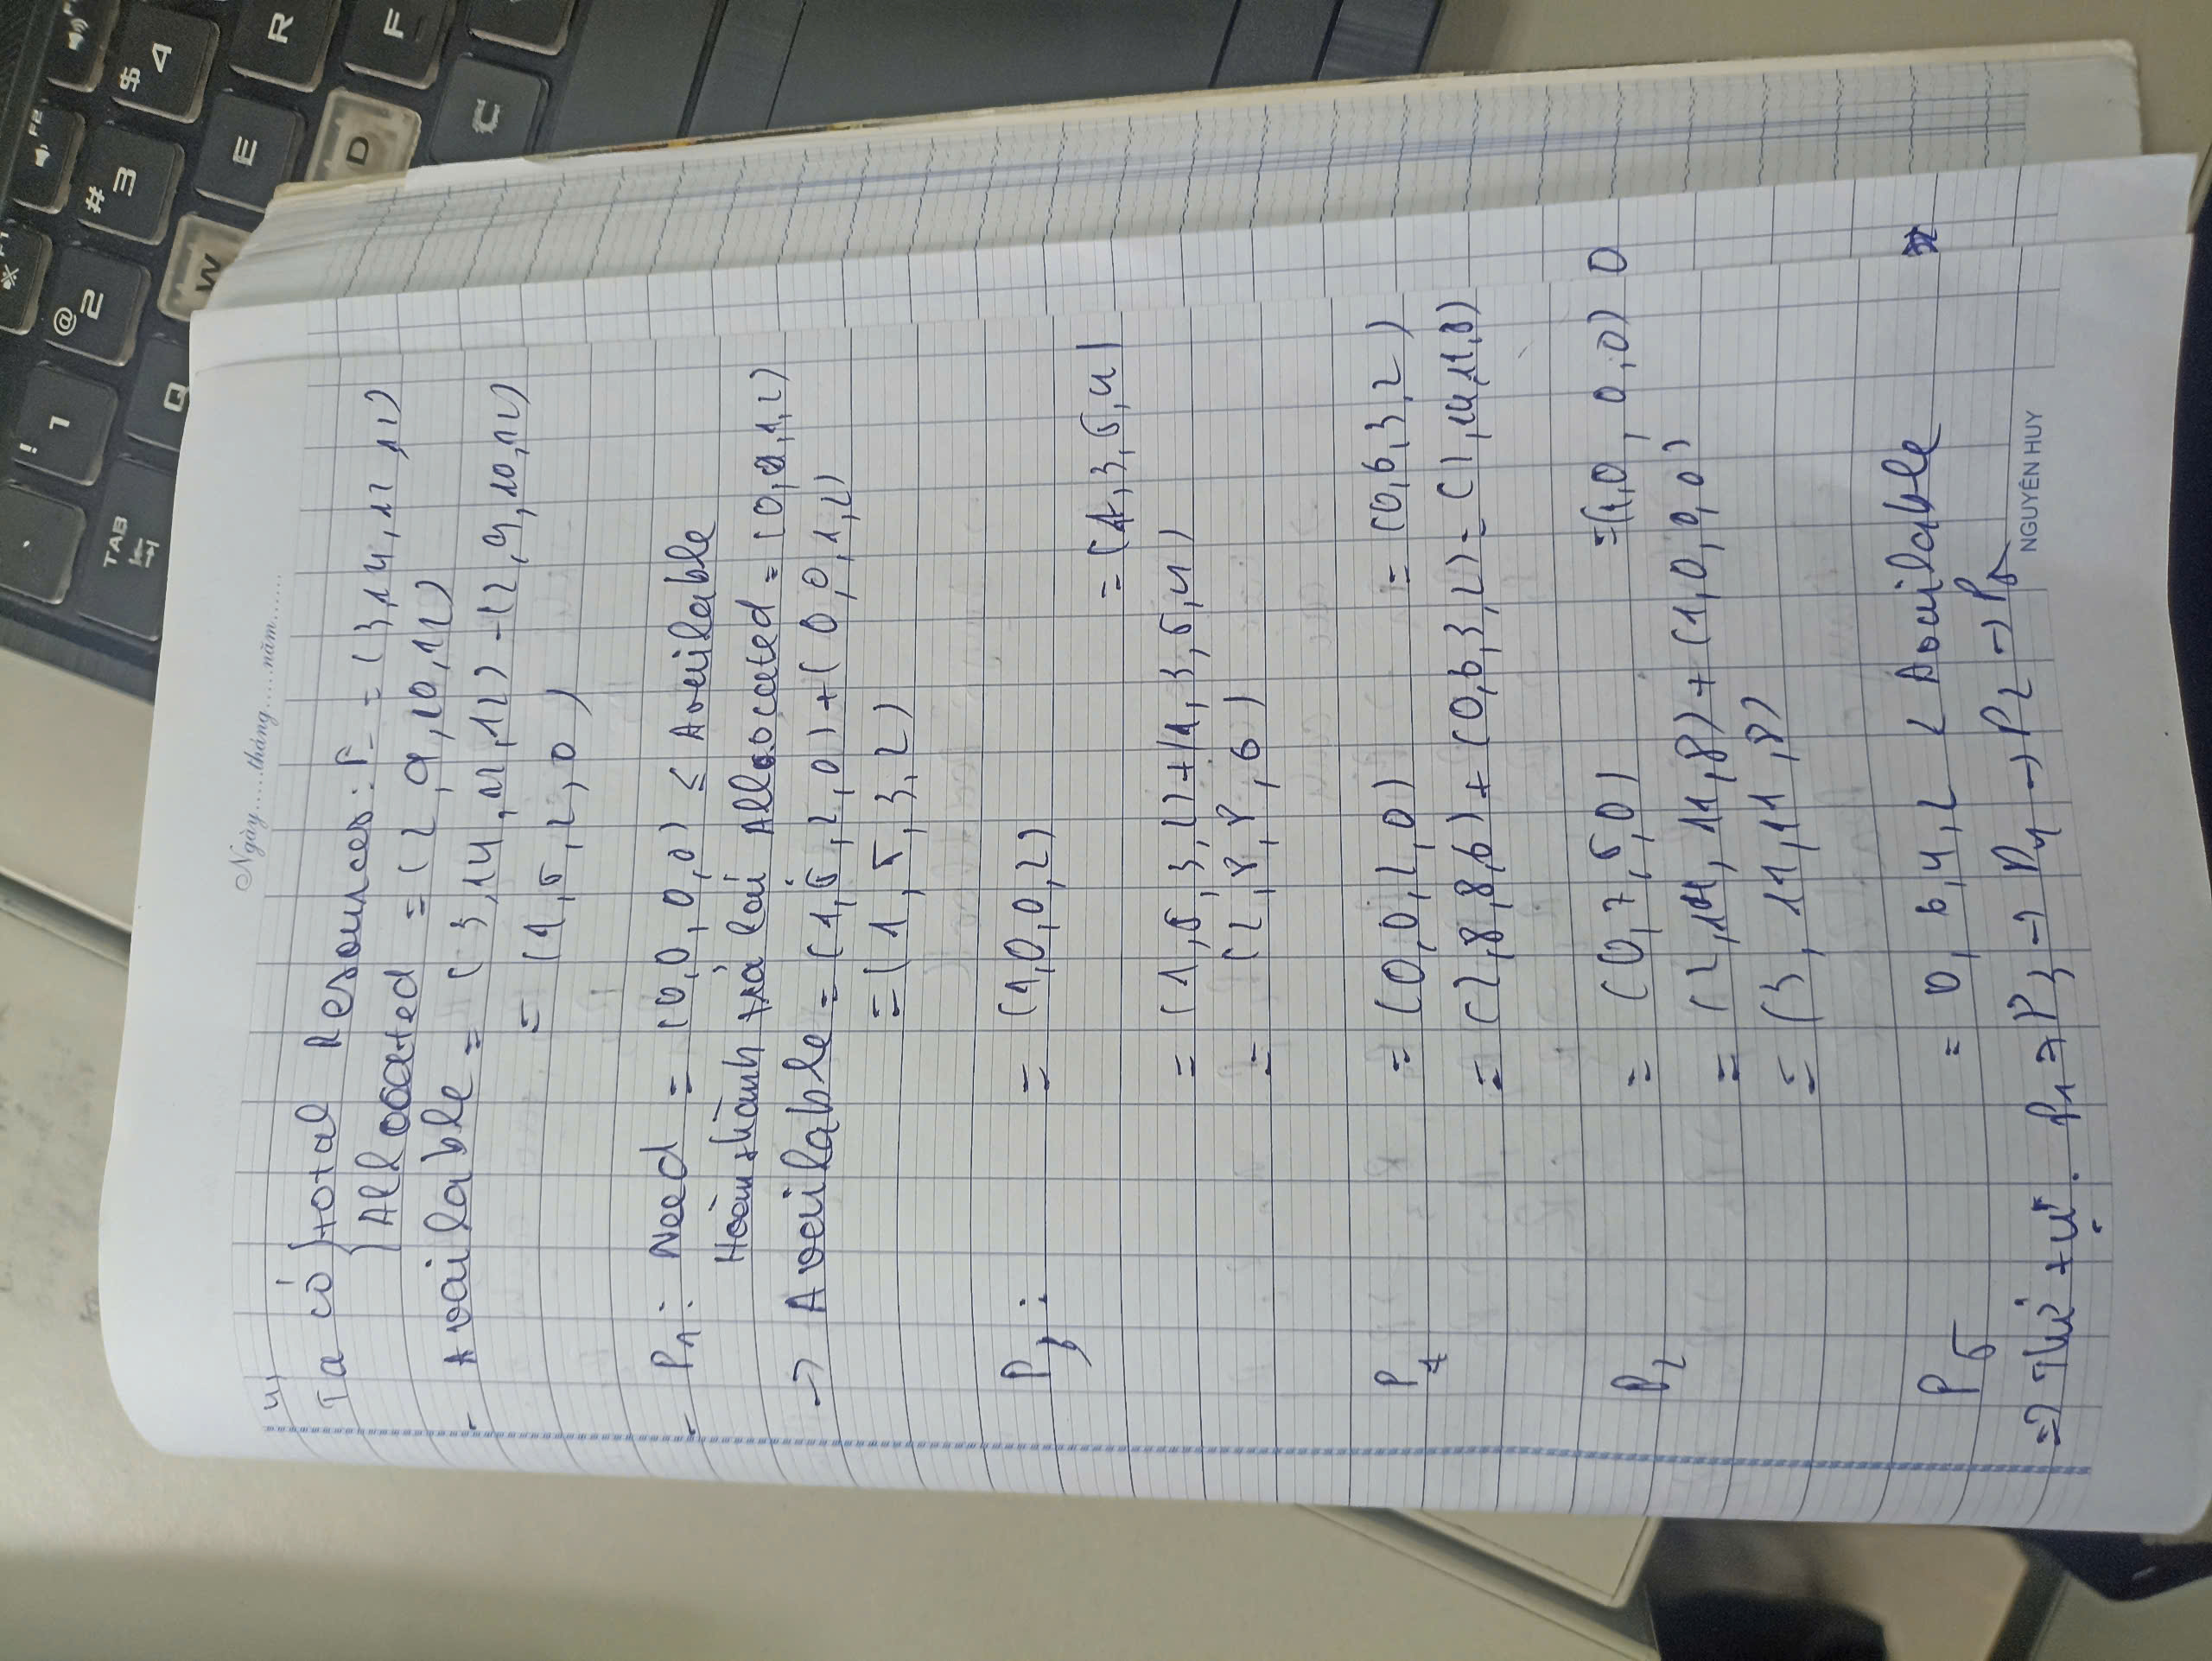 Ngày.....tháng.....năm......
4)
Ta có { total Resources: E = (3,14,12,12)
Allocated = (2,9,10,12)
- Available = (3,14,12,12) - (2,9,10,12)
= (1,5,2,0)
- P1: Need = (0,0,0,0) ≤ Available
Hoàn thành trả lại Allocated = (0,0,1,2)
→ Available = (1,5,2,0) + (0,0,1,2)
= (1,5,3,2)
P3: = (1,0,0,2)
= (1,3,5,4)
= (1,5,3,2) + (1,3,5,4)
= (2,8,8,6)
P4 = (0,0,2,0) = (0,6,3,2)
= (2,8,8,6) + (0,6,3,2) = (2,14,11,8)
P2 = (0,7,5,0) = (1,0,0,0) 0
= (2,14,11,8) + (1,0,0,0)
= (3,11,11,8)
P5 = 0,6,4,2 < Available
⇒ Thứ tự. P1 → P3 → P4 → P2 → P5
NGUYÊN HUY
TAB
! 1
@ 2
# 3
$ 4
F1
F2
Q
W
E
R
D
F
C